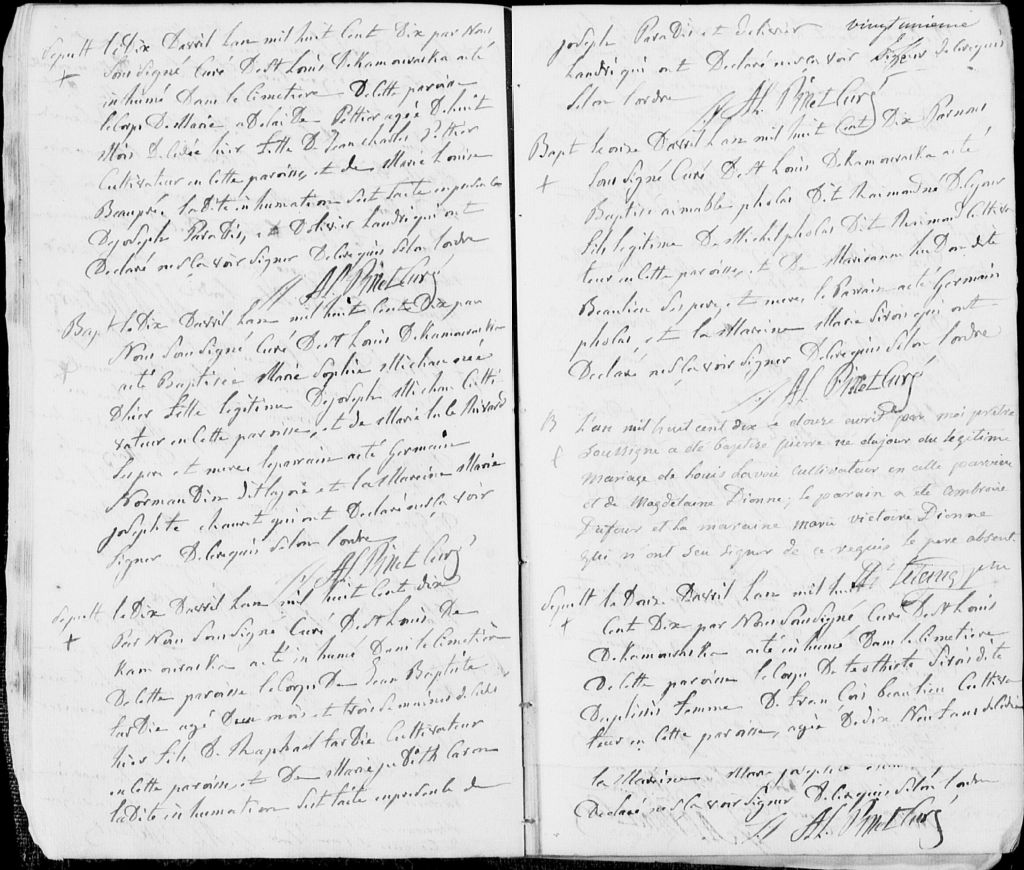 Sepult le Dix Davril Lan mil huit Cent Dix par Nous
+ Sousigné Curé De St Louis De Kamouraska a eté
in humé Dans le Cimetiere De Cette paroisse
le Corps De Marie adelaide Pettier agée De huit
Mois Decédée hier fille De Jean charles Peltier
Cultivateur en Cette paroisse, et de Marie Louise
Beaupré, la Dite in humation S'est faite en presence
De joseph Paradis, et D olivier Landri qui ont
Declaré ne Sa voir Signer De ce requis Selon lordre
Al. Pinet Curé
Bapt le Dix Davril Lan mil huit Cent Dix par
Nous Sousigné Curé De St Louis De Kamouraska
+ a eté Baptisée Marie Sophie Michau née
Dhier fille legitime De joseph Michau Culti
vateur en Cette paroisse, et de Marie
Ses pere et mere, le parrain a eté Germain
Normandin dit lajoie et la Mareine Marie
josephte chouret qui ont Declaré ne Sa voir
Signer De ce requis Selon lordre
Al. Pinet Curé
Sepult le Dix Davril Lan mil huit Cent dix
+ Par Nous Sousigné Curé De St Louis De
Kamouraska a eté in humé Dans le Cimetiere
De Cette paroisse le Corps De Jean Baptiste
tardie agé D'un mois et trois Semaines decédé
hier fils De Raphael tardie Cultivateur
en Cette paroisse, et De Marie judith Caron
la Dite in humation S'est faite en presence de
joseph Paradis et D olivier vingtunieme
Landri qui ont Declaré ne Sa voir Signer De ce requis
Selon lordre Al. Pinet Curé
Bapt le onze Davril Lan mil huit Cent Dix Par nous
+ Sous Signé Curé De St Louis De Kamouraska a eté
Baptisé aimable pholas Dit Raimond né De ce jour
fils legitime De Michel pholas Dit Raimond Cultiva
teur en Cette paroisse, et De Marianne hudon dite
Beaulieu Ses pere, et mere, le Parain a eté Germain
pholas, et la Mareine Marie Sirois qui ont
Declaré ne Sa voir Signer De ce requis Selon lordre
Al. Pinet Curé
B Lan mil huit cent dix le douze avril par moi prêtre
+ Soussigné a été baptisé pierre né dujour du legitime
mariage de Louis Lavoie cultivateur en cette paroisse
et de Magdelaine Dionne; le parain a eté ambroise
Dufour et la maraine marie victoire Dionne
qui n'ont seu signer de ce requis le pere absent.
ptre
Sepult le Douze Davril Lan mil huit
+ Cent Dix par Nous Sousigné Curé De St Louis
De Kamouraska a eté in humé Dans le Cimetiere
De Cette paroisse le Corps De Sirois dite
Duplissis femme De François beaulieu Cultiva
teur en Cette paroisse, agée De dix Neuf ans
la Mareine Marie josephte
Declaré ne Sa voir Signer De ce requis Selon lordre
Al. Pinet Curé